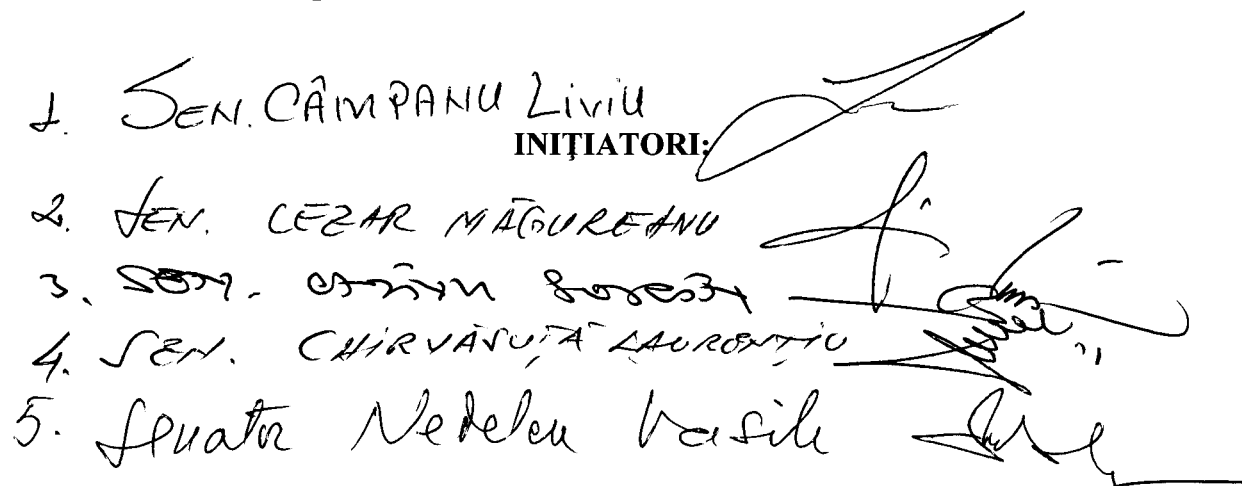 1. SEN. CÂMPANU Liviu
INIȚIATORI:
2. SEN. CEZAR MĂGUREANU
3. SEN.
4. SEN. CHIRVĂSUȚĂ LAURENȚIU
5. Senator Nedelcu Vasile